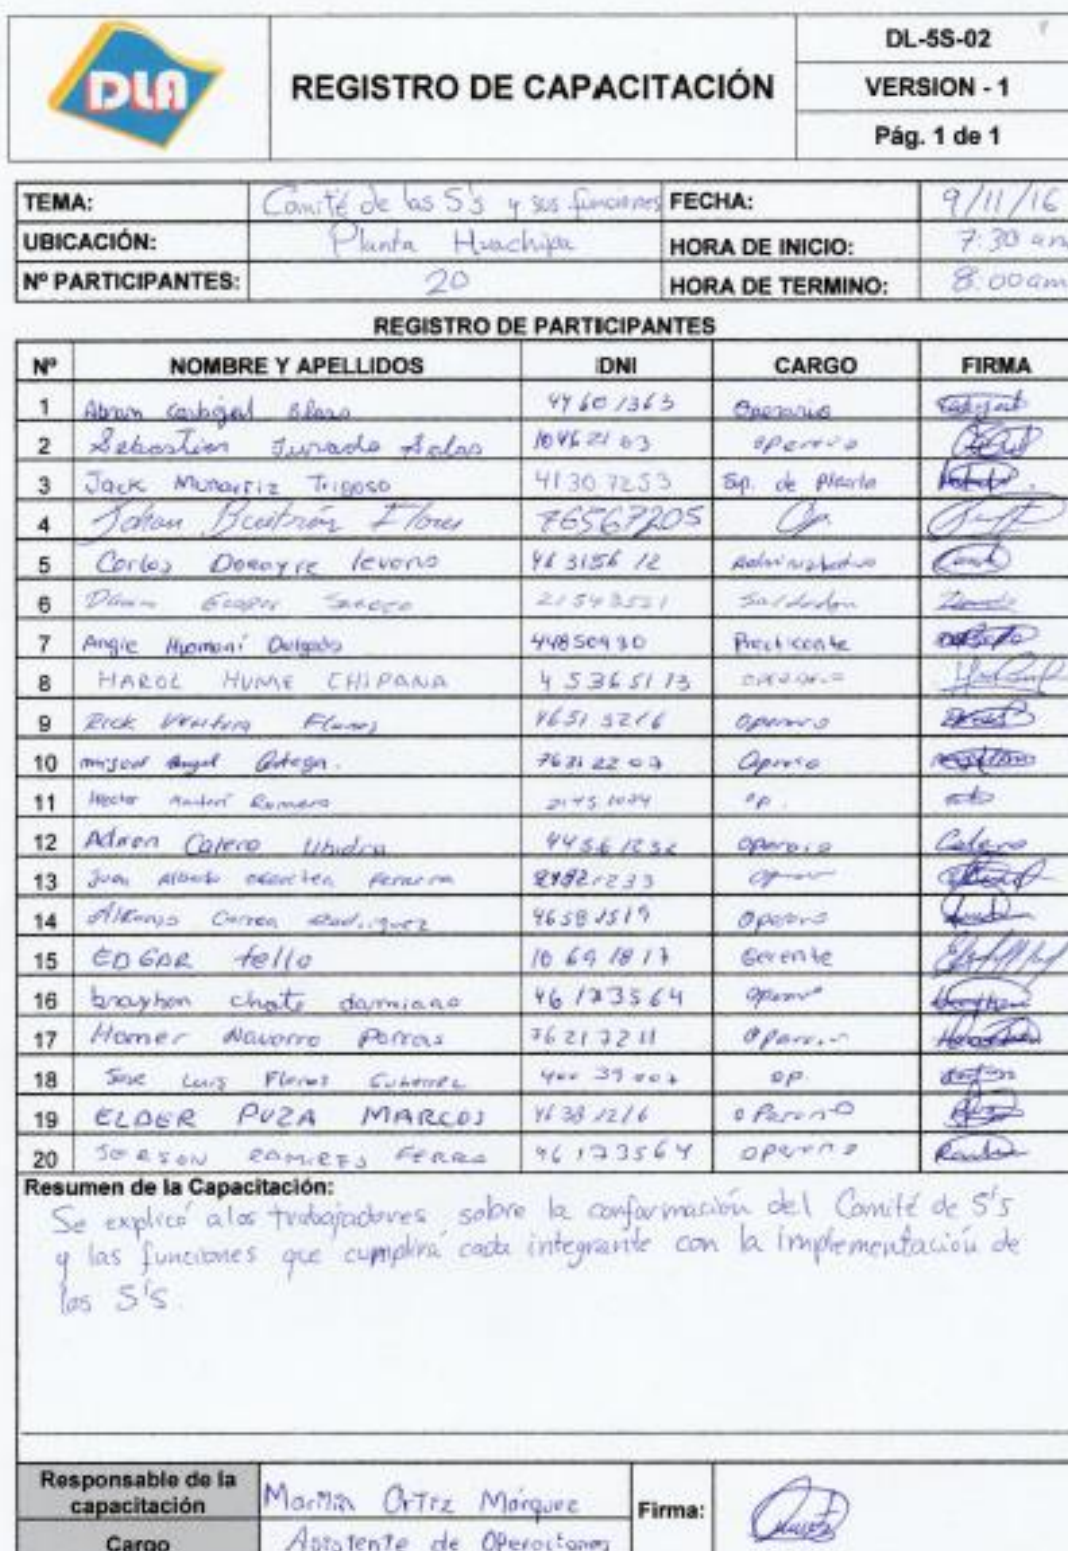 DLA
REGISTRO DE CAPACITACIÓN
DL-5S-02
VERSION - 1
Pág. 1 de 1
TEMA: Comité de las 5's y sus funciones FECHA: 9/11/16
UBICACIÓN: Planta Huachipa HORA DE INICIO: 7:30 am
Nº PARTICIPANTES: 20 HORA DE TERMINO: 8:00am
REGISTRO DE PARTICIPANTES
Nº NOMBRE Y APELLIDOS DNI CARGO FIRMA
1 Abram Carbajal 44601363 Operario
2 Sebastian Jurado Salas 10462103 operario
3 Jack Munarriz Trigoso 41307253 Sp. de Planta
4 Johan Flores 76567205 Op.
5 Carlos 46315612 Administrativo
6 21543521 Soldador
7 Angie Huamaní Delgado 44850930 Practicante
8 HAROL HUME CHIPANA 45365113 operario
9 Rick Ventura Flores 46515216 operario
10 miguel Angel Ortega. Operario
11 Hector Romero op.
12 Adrian Calero 44561232 operario Calero
13 Juan Alberto
14 Alfonso Correa Rodriguez 46581519 operario
15 EDGAR tello 10691817 Gerente
16 brayhon chate damiano 46173564 operario
17 Homer Navarro Porras 76217211 operario
18 Jose Luis Flores op.
19 ELDER PUZA MARCOS 46381216 operario
20 JERSON RAMIRES FERRA 46173564 operario
Resumen de la Capacitación:
Se explicó a los trabajadores sobre la conformación del Comité de 5's
y las funciones que cumplirá cada integrante con la implementación de
las 5's.
Responsable de la capacitación Ortiz Márquez Firma:
Cargo Asistente de Operaciones